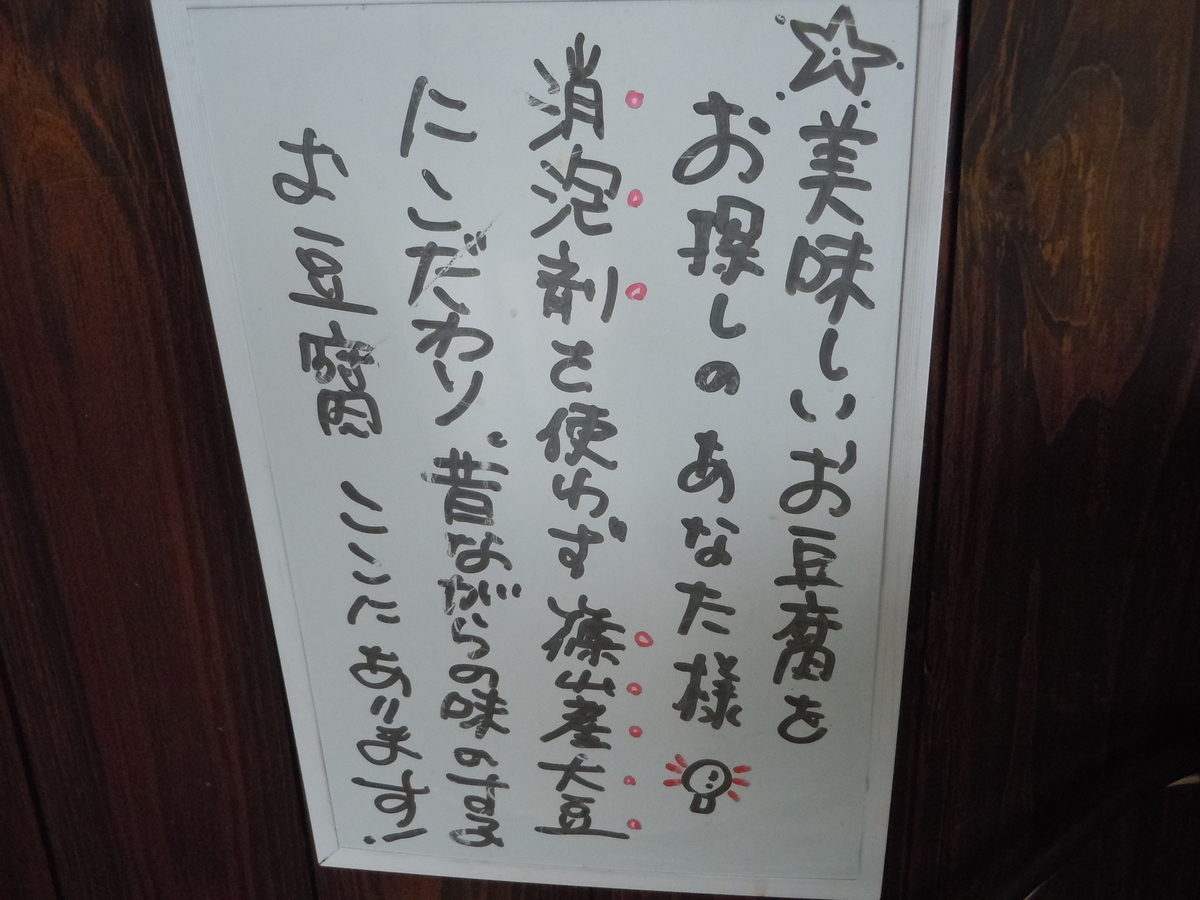 ☆美味しいお豆腐を
お探しのあなた様
消泡剤を使わず篠山産大豆
にこだわり。昔ながらの味のする
お豆腐 ここにあります!